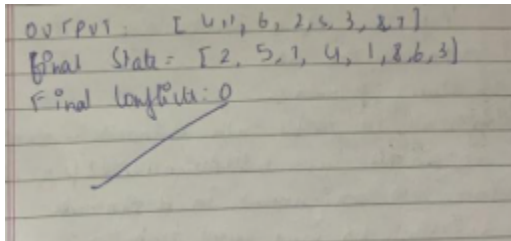 OUTPUT: [4,1, 6, 2, 5, 3, 8, 7]
Final State = [2, 5, 7, 4, 1, 8, 6, 3]
Final Conflicts: 0